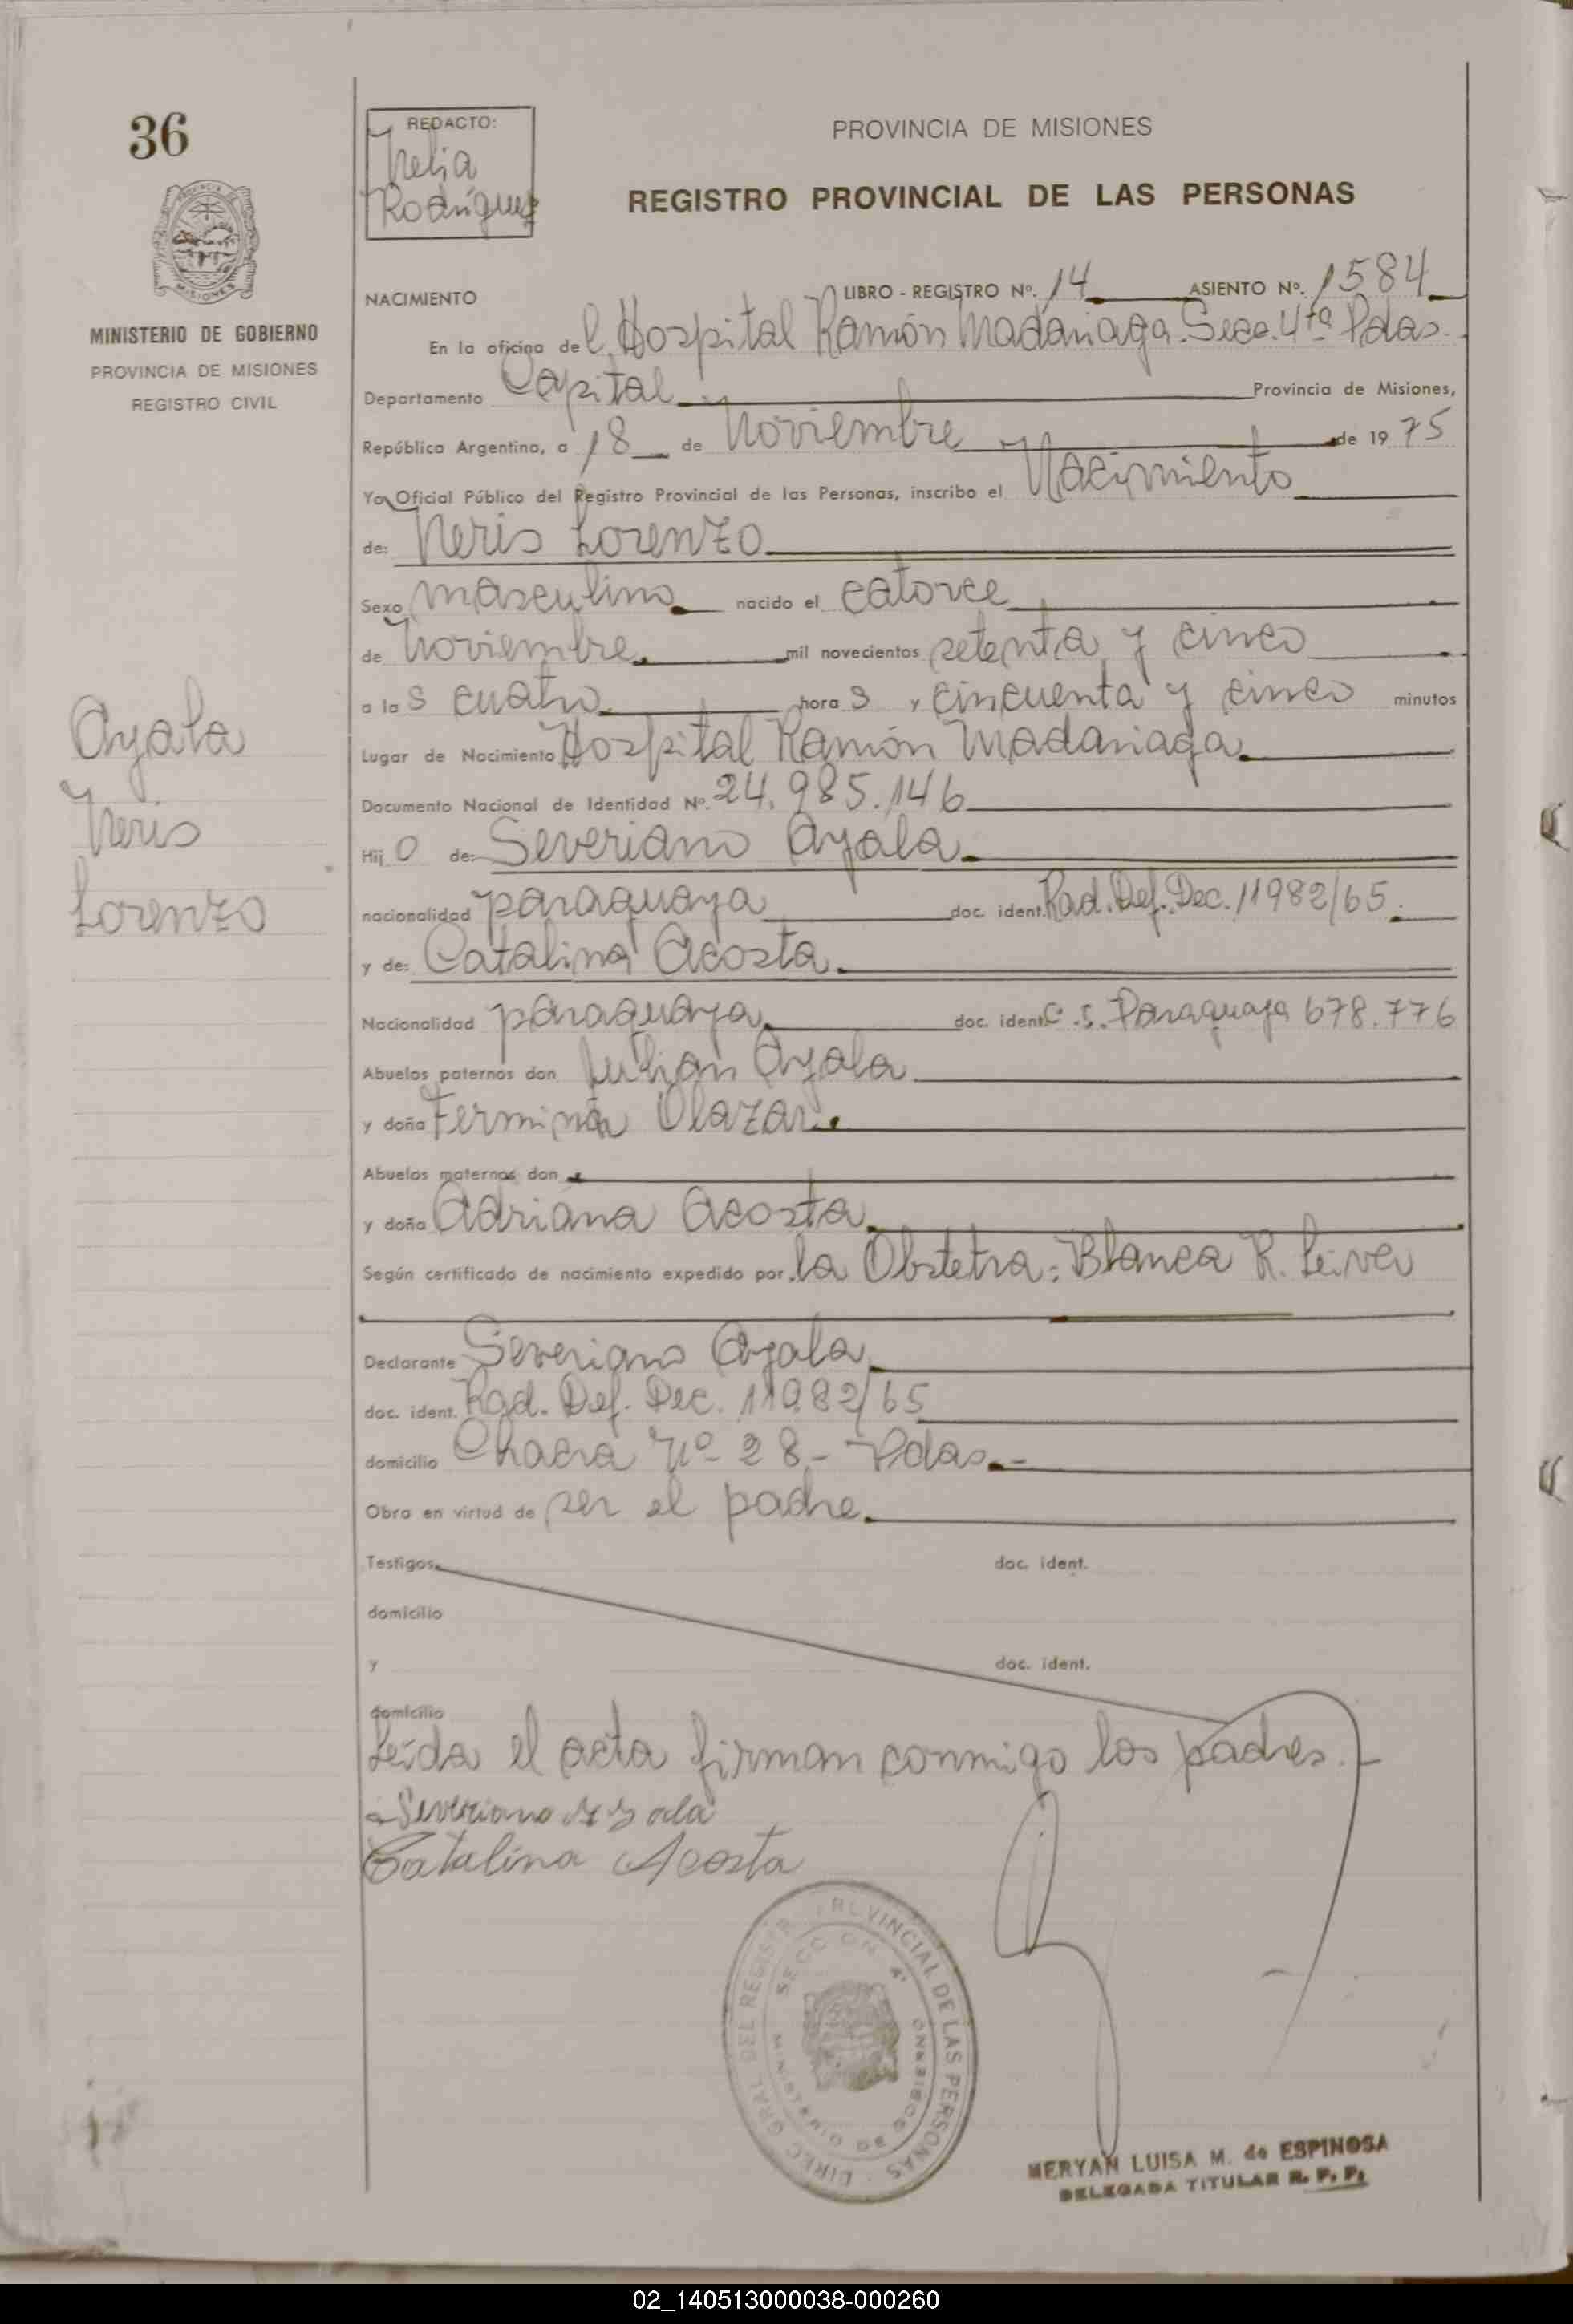 36
MINISTERIO DE GOBIERNO
PROVINCIA DE MISIONES
REGISTRO CIVIL
Ayala
Neris
Lorenzo
REDACTO:
Nelia
Rodríguez
PROVINCIA DE MISIONES
REGISTRO PROVINCIAL DE LAS PERSONAS
NACIMIENTO LIBRO - REGISTRO Nº. 14 ASIENTO Nº. 1584
En la oficina del Hospital Ramón Madariaga. Secc. 4ta Pdas.
Departamento Capital Provincia de Misiones,
República Argentina, a 18 de Noviembre de 1975
Yo, Oficial Público del Registro Provincial de las Personas, inscribo el Nacimiento
de: Neris Lorenzo
Sexo masculino nacido el catorce
de Noviembre mil novecientos setenta y cinco
a las cuatro horas y cincuenta y cinco minutos
Lugar de Nacimiento Hospital Ramón Madariaga
Documento Nacional de Identidad Nº. 24.985.146
Hijo de: Severiano Ayala
nacionalidad paraguaya doc. ident. Rad. Def. Dec. 11982/65.
y de: Catalina Acosta
Nacionalidad paraguaya doc. ident. C.I. Paraguaya 678.776
Abuelos paternos don Julian Ayala
y doña Fermina Olazar
Abuelos maternos don
y doña Adriana Acosta
Según certificado de nacimiento expedido por la Obstetra: Blanca R. Leiva
Declarante Severiano Ayala
doc. ident. Rad. Def. Dec. 11982/65
domicilio Chacra Nº 28.- Pdas.-
Obra en virtud de ser el padre
Testigos doc. ident.
domicilio
y doc. ident.
domicilio
Leída el acta firman conmigo los padres.-
Severiano Ayala
Catalina Acosta
DIREC. GRAL. DEL REGISTR PROVINCIAL DE LAS PERSONAS
SECCION 4ª
MINISTERIO DE GOBIERNO
MERYAN LUISA M. de ESPINOSA
DELEGADA TITULAR R. P. P.
02_140513000038-000260